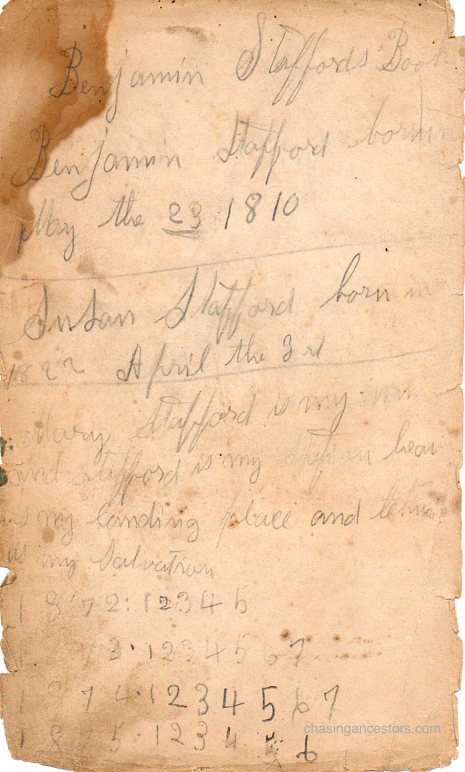 Benjamin Staffords Book
Benjamin Stafford born in
May the 23 1810
Susan Stafford born in
1822 April the 3 rd
Mary Stafford is my
and Stafford is my in heav
is my landing place and
is my Salvation
1 8 7 2: 1 2 3 4 5
1 8 7 3 · 1 2 3 4 5 6 7
1 8 7 4 · 1 2 3 4 5 6 7
1 8 7 5 · 1 2 3 4 5 6
chasingancestors.com